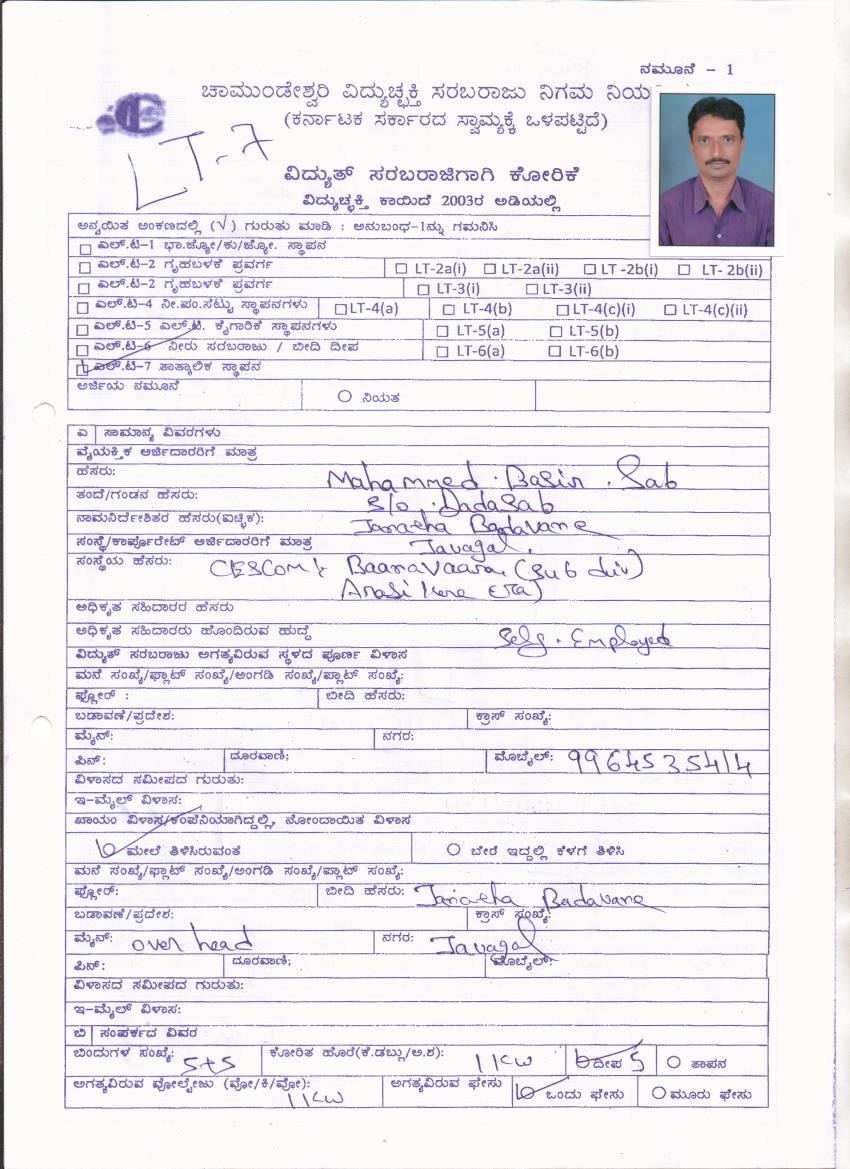 ನಮೂನೆ - 1
ಚಾಮುಂಡೇಶ್ವರಿ ವಿದ್ಯುಚ್ಛಕ್ತಿ ಸರಬರಾಜು ನಿಗಮ ನಿಯ
(ಕರ್ನಾಟಕ ಸರ್ಕಾರದ ಸ್ವಾಮ್ಯಕ್ಕೆ ಒಳಪಟ್ಟಿದೆ)
LT-7
ವಿದ್ಯುತ್ ಸರಬರಾಜಿಗಾಗಿ ಕೋರಿಕೆ
ವಿದ್ಯುಚ್ಛಕ್ತಿ ಕಾಯಿದೆ 2003ರ ಅಡಿಯಲ್ಲಿ
ಅನ್ವಯಿತ ಅಂಕಣದಲ್ಲಿ (√) ಗುರುತು ಮಾಡಿ : ಅನುಬಂಧ-1ನ್ನು ಗಮನಿಸಿ
ಎಲ್.ಟಿ-1 ಭಾ.ಜ್ಯೋ/ಕು/ಜ್ಯೋ. ಸ್ಥಾಪನ
ಎಲ್.ಟಿ-2 ಗೃಹಬಳಕೆ ಪ್ರವರ್ಗ LT-2a(i) LT-2a(ii) LT -2b(i) LT- 2b(ii)
ಎಲ್.ಟಿ-2 ಗೃಹಬಳಕೆ ಪ್ರವರ್ಗ LT-3(i) LT-3(ii)
ಎಲ್.ಟಿ-4 ನೀ.ಪಂ.ಸೆಟ್ಟು ಸ್ಥಾಪನಗಳು LT-4(a) LT-4(b) LT-4(c)(i) LT-4(c)(ii)
ಎಲ್.ಟಿ-5 ಎಲ್.ಟಿ. ಕೈಗಾರಿಕೆ ಸ್ಥಾಪನಗಳು LT-5(a) LT-5(b)
ಎಲ್.ಟಿ-6 ನೀರು ಸರಬರಾಜು / ಬೀದಿ ದೀಪ LT-6(a) LT-6(b)
ಎಲ್.ಟಿ-7 ತಾತ್ಕಾಲಿಕ ಸ್ಥಾಪನ
ಅರ್ಜಿಯ ನಮೂನೆ ನಿಯತ
ಎ ಸಾಮಾನ್ಯ ವಿವರಗಳು
ವೈಯಕ್ತಿಕ ಅರ್ಜಿದಾರರಿಗೆ ಮಾತ್ರ
ಹೆಸರು: Mahammed. Basir. Sab
ತಂದೆ/ಗಂಡನ ಹೆಸರು: S/o. DadaSab
ನಾಮನಿರ್ದೇಶಿತರ ಹೆಸರು(ಐಚ್ಛಿಕ): Janatha Badavane
ಸಂಸ್ಥೆ/ಕಾರ್ಪೊರೇಟ್ ಅರ್ಜಿದಾರರಿಗೆ ಮಾತ್ರ Javagal.
ಸಂಸ್ಥೆಯ ಹೆಸರು: CESCOM (Sub div)
ಅಧಿಕೃತ ಸಹಿದಾರರ ಹೆಸರು
ಅಧಿಕೃತ ಸಹಿದಾರರು ಹೊಂದಿರುವ ಹುದ್ದೆ Self. Employed
ವಿದ್ಯುತ್ ಸರಬರಾಜು ಅಗತ್ಯವಿರುವ ಸ್ಥಳದ ಪೂರ್ಣ ವಿಳಾಸ
ಮನೆ ಸಂಖ್ಯೆ/ಫ್ಲಾಟ್ ಸಂಖ್ಯೆ/ಅಂಗಡಿ ಸಂಖ್ಯೆ/ಪ್ಲಾಟ್ ಸಂಖ್ಯೆ:
ಫ್ಲೋರ್ : ಬೀದಿ ಹೆಸರು:
ಬಡಾವಣೆ/ಪ್ರದೇಶ: ಕ್ರಾಸ್ ಸಂಖ್ಯೆ:
ಮೈನ್: ನಗರ:
ಪಿನ್: ದೂರವಾಣಿ; ಮೊಬೈಲ್: 9964535414
ವಿಳಾಸದ ಸಮೀಪದ ಗುರುತು:
ಇ-ಮೈಲ್ ವಿಳಾಸ:
ಖಾಯಂ ವಿಳಾಸ/ಕಂಪೆನಿಯಾಗಿದ್ದಲ್ಲಿ, ನೋಂದಾಯಿತ ವಿಳಾಸ
ಮೇಲೆ ತಿಳಿಸಿರುವಂತೆ ಬೇರೆ ಇದ್ದಲ್ಲಿ ಕೆಳಗೆ ತಿಳಿಸಿ
ಮನೆ ಸಂಖ್ಯೆ/ಫ್ಲಾಟ್ ಸಂಖ್ಯೆ/ಅಂಗಡಿ ಸಂಖ್ಯೆ/ಪ್ಲಾಟ್ ಸಂಖ್ಯೆ:
ಫ್ಲೋರ್: ಬೀದಿ ಹೆಸರು: Janatha Badavane
ಬಡಾವಣೆ/ಪ್ರದೇಶ: ಕ್ರಾಸ್ ಸಂಖ್ಯೆ:
ಮೈನ್: over head ನಗರ: Javagal
ಪಿನ್: ದೂರವಾಣಿ; ಮೊಬೈಲ್:
ವಿಳಾಸದ ಸಮೀಪದ ಗುರುತು:
ಇ-ಮೈಲ್ ವಿಳಾಸ:
ಬಿ ಸಂಪರ್ಕದ ವಿವರ
ಬಿಂದುಗಳ ಸಂಖ್ಯೆ: 5+5 ಕೋರಿತ ಹೊರೆ(ಕೆ.ಡಬ್ಲು/ಅ.ಶ): 1 KW ದೀಪ 5 ತಾಪನ
ಅಗತ್ಯವಿರುವ ವೋಲ್ಟೇಜು (ವೋ/ಕಿ/ವೋ): 1 KW ಅಗತ್ಯವಿರುವ ಫೇಸು ಒಂದು ಫೇಸು ಮೂರು ಫೇಸು